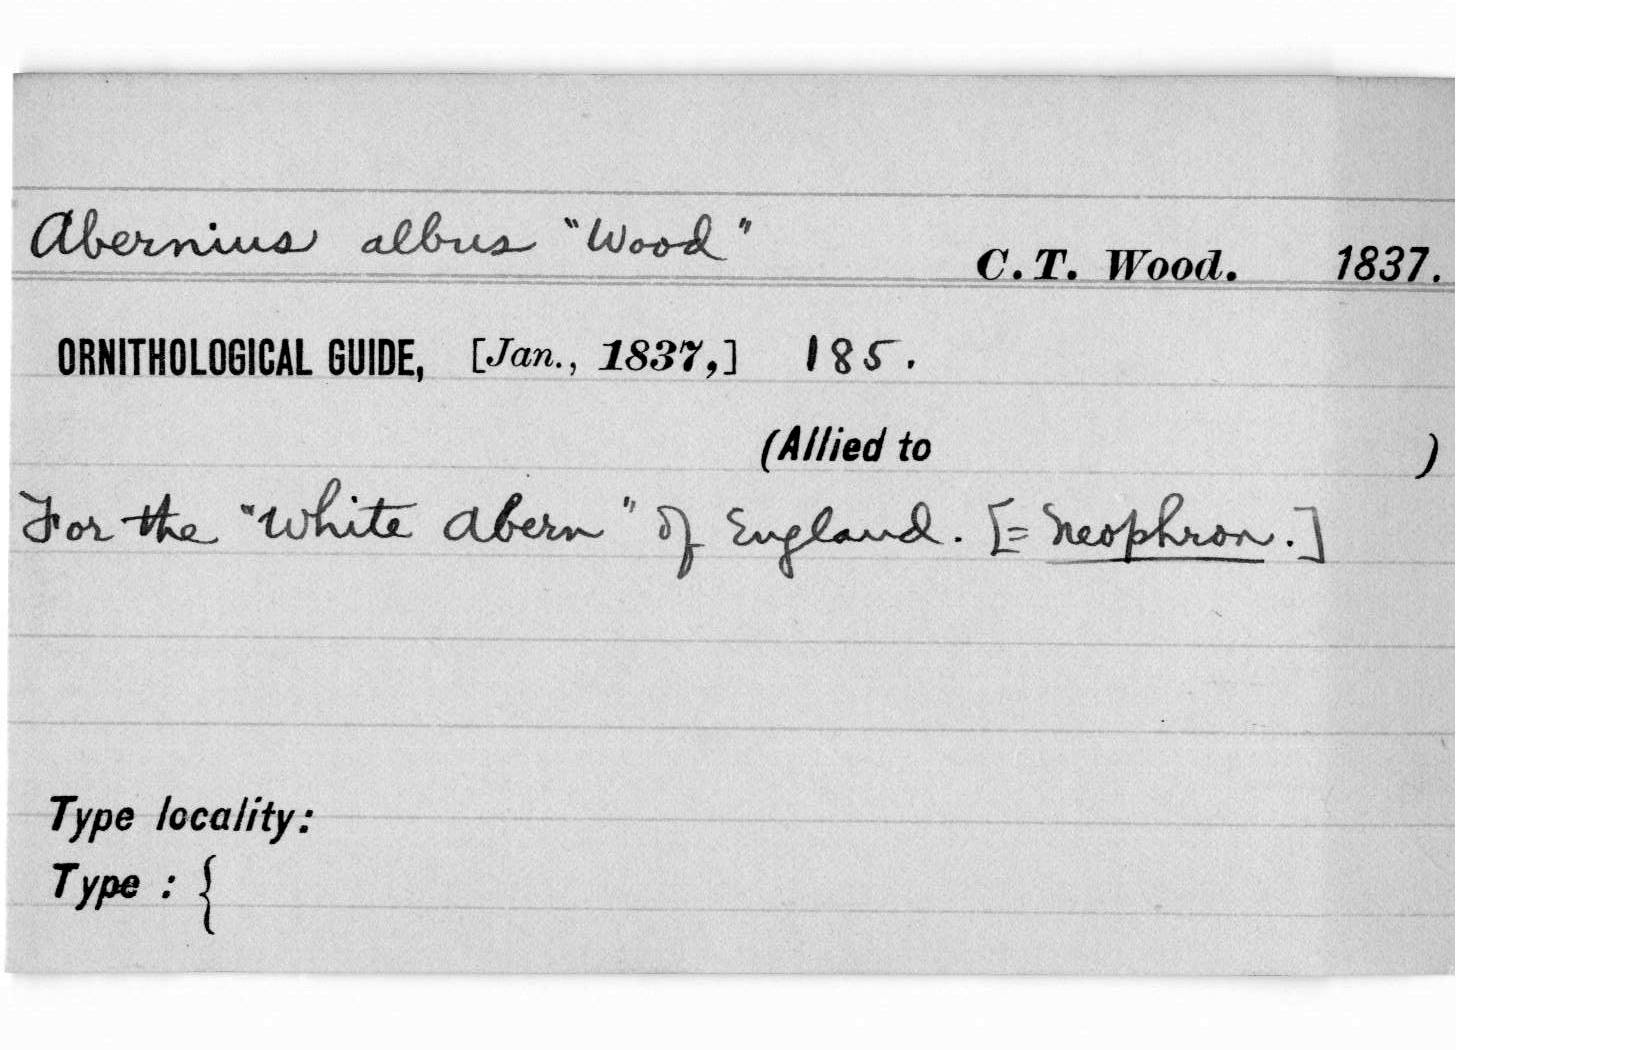 Abernius albus "Wood" C. T. Wood. 1837.
ORNITHOLOGICAL GUIDE, [Jan., 1837,] 185.
(Allied to )
For the "White Abern" of England. [= Neophron.]
Type locality:
Type : {